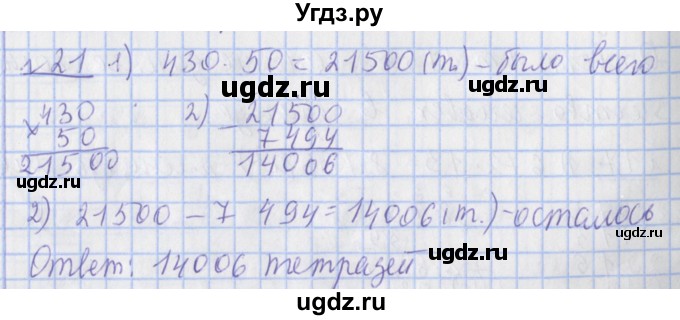 Угдз.ру
№21 1) 430 · 50 = 21500 (т.) – было всего
430
× 50
21500
2) 21500
– 7494
14006
ugdz.ru
ugdz.ru
ugdz.ru
2) 21500 – 7 494 = 14006 (т.) – осталось
ugdz.ru
Ответ: 14006 тетрадей
ugdz.ru
ugdz.ru